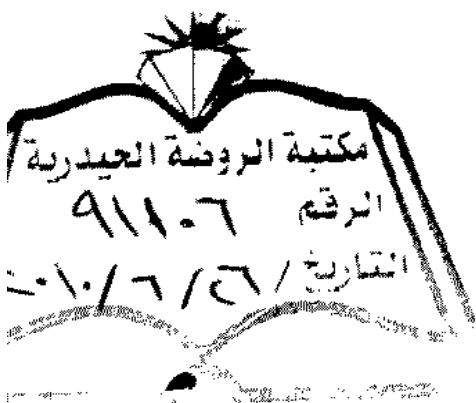 مكتبة الروضة الحيدرية
الرقم ٩١١٠٦
التاريخ / ٢٦ / ٦ / ٢٠١٠